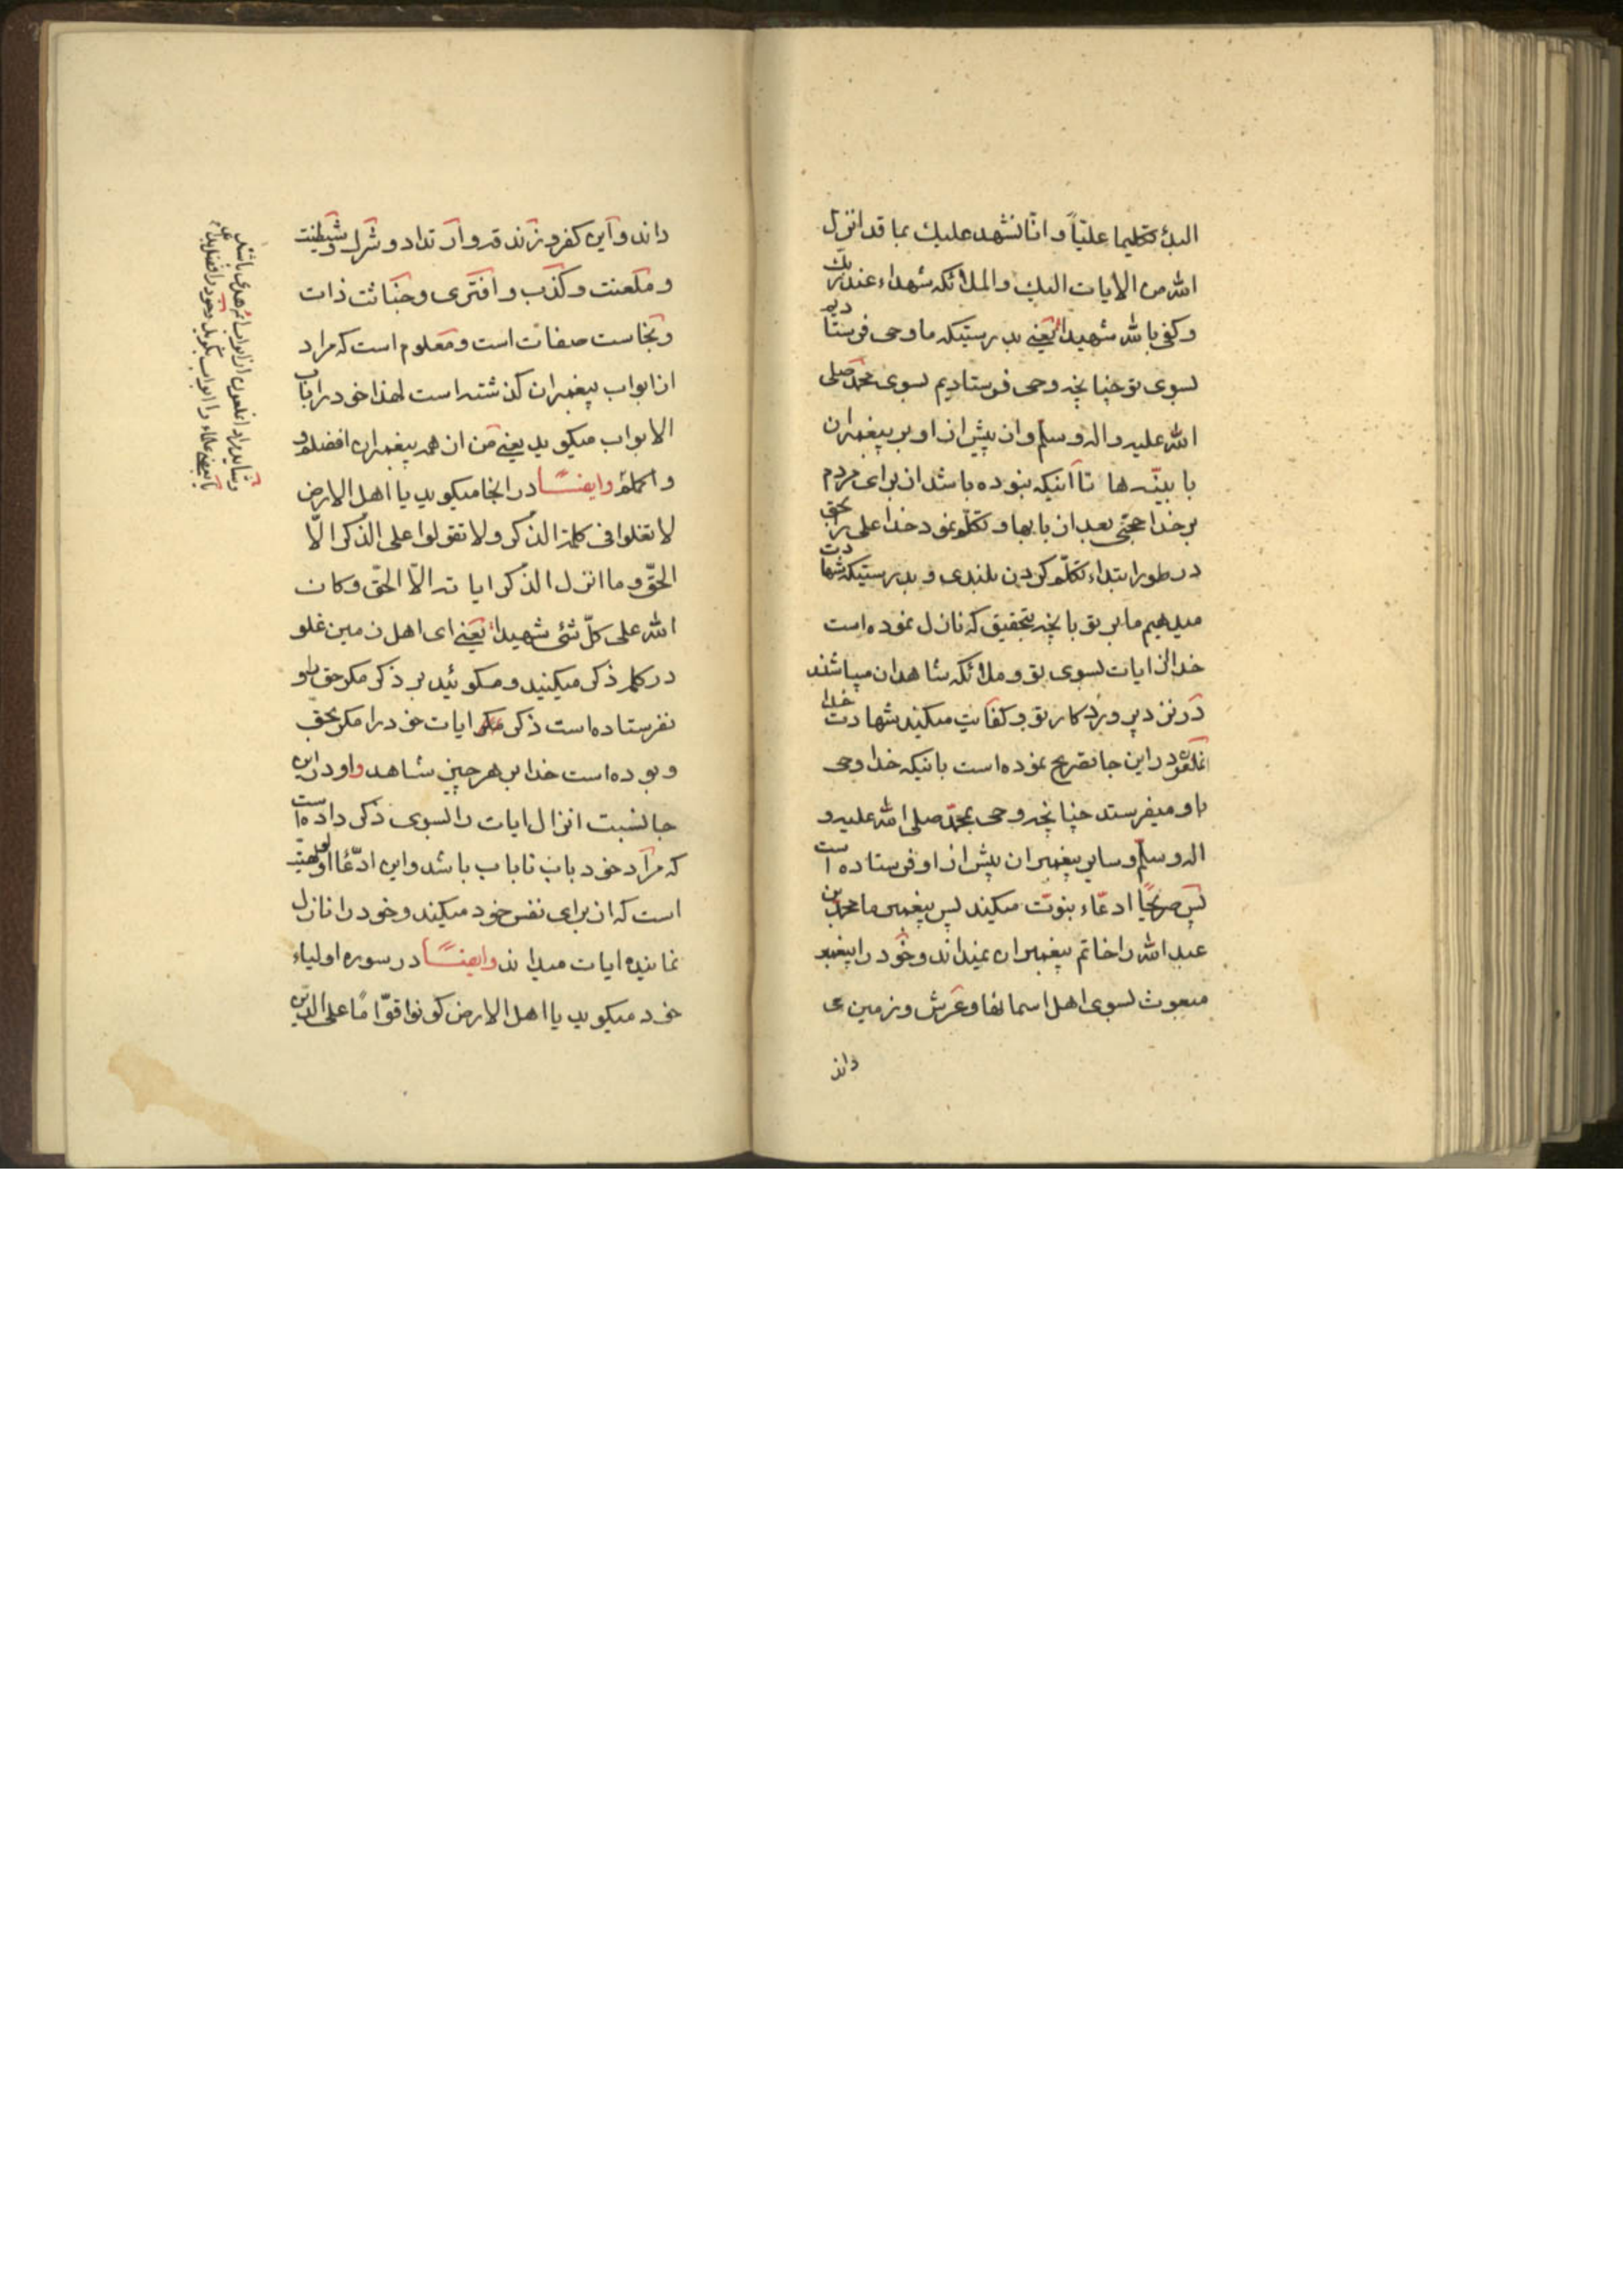 الیك تکلیما علیّاً و انّا نشهد علیك بما قد انزل
الله من الایات الیك و الملائکه شهداء عند ربّك
و کفی بالله شهیداً یعنی بدرستیکه ما وحی فرستادیم
بسوی تو چنانچه وحی فرستادیم بسوی محمّد صلی
الله علیه و اله و سلم و از پیش از او بر پیغمبران
با بینّه ها تا آنیکه نبوده باشد از برای مردم
بر خدا حجتی بعد از بابها و تکلّم نمود خدا علی را بحق
در طور ابتداء تکلّم کردن بلندی و بدرستیکه شهادت
میدهیم ما بر تو بانچه بتحقیق که نازل نموده است
خدا از ایات بسوی تو و ملائکه شاهدان میباشند
در نزد پروردکار تو و کفایت میکند شهادت خدا
انملعون در این جا تصریح نموده است بانیکه خدا وحی
باو میفرستد چنانچه وحی بمحمّد صلی الله علیه و
اله و سلّم و سایر پیغمبران پیش از او فرستاده است
پس صریحاً ادعّاء نبوّت میکند پس پیغمبر ما محمّد بن
عبد الله را خاتم پیغمبران نمیداند و خود را پیغمبر
مبعوث بسوی اهل اسمانها و عرش و زمین می
داند
داند و این کفر و زندقه و ارتداد و شرك و شیطنت
و ملعنت و کذب و افتری و خباثت ذات
و نجاست صفات است و معلوم است که مراد
از ابواب پیغمبران کذشته است لهذا خود را باب
الابواب میکوید یعنی من از همه پیغمبران افضلم و
و اکملم وایضـــاً در انجا میکوید یا اهل الارض
لا تغلوا فی کلمة الذکر و لا تقولوا علی الذکر الّا
الحقّ و ما انزل الذکر ایاته الّا الحقّ و کان
الله علی کلّ شئی شهیداً یعنی ای اهل زمین غلو
در کلمه ذکر میکنید و میکوئید بر ذکر مکر حق باو
نفرستاده است ذکر مکر ایات خود را مکر بحق
و بوده است خدا بر هر چیز شاهد و او در این
جا نسبت انزال ایات را بسوی ذکر داده است
که مراد خود باب ناباب باشد و این ادّعّا الوهیّت
است که از برای نفس خود میکند و خود را نازل
نماینده ایات میداند وایضـــاً در سوره اولیاء
خود میکوید یا اهل الارض کونوا قوّاماً علی الدین
و شاید مراد انملعون از ابواب ائمه هدی باشد
یا بعضی علماء را ابواب بکوید و خود را افضل بداند